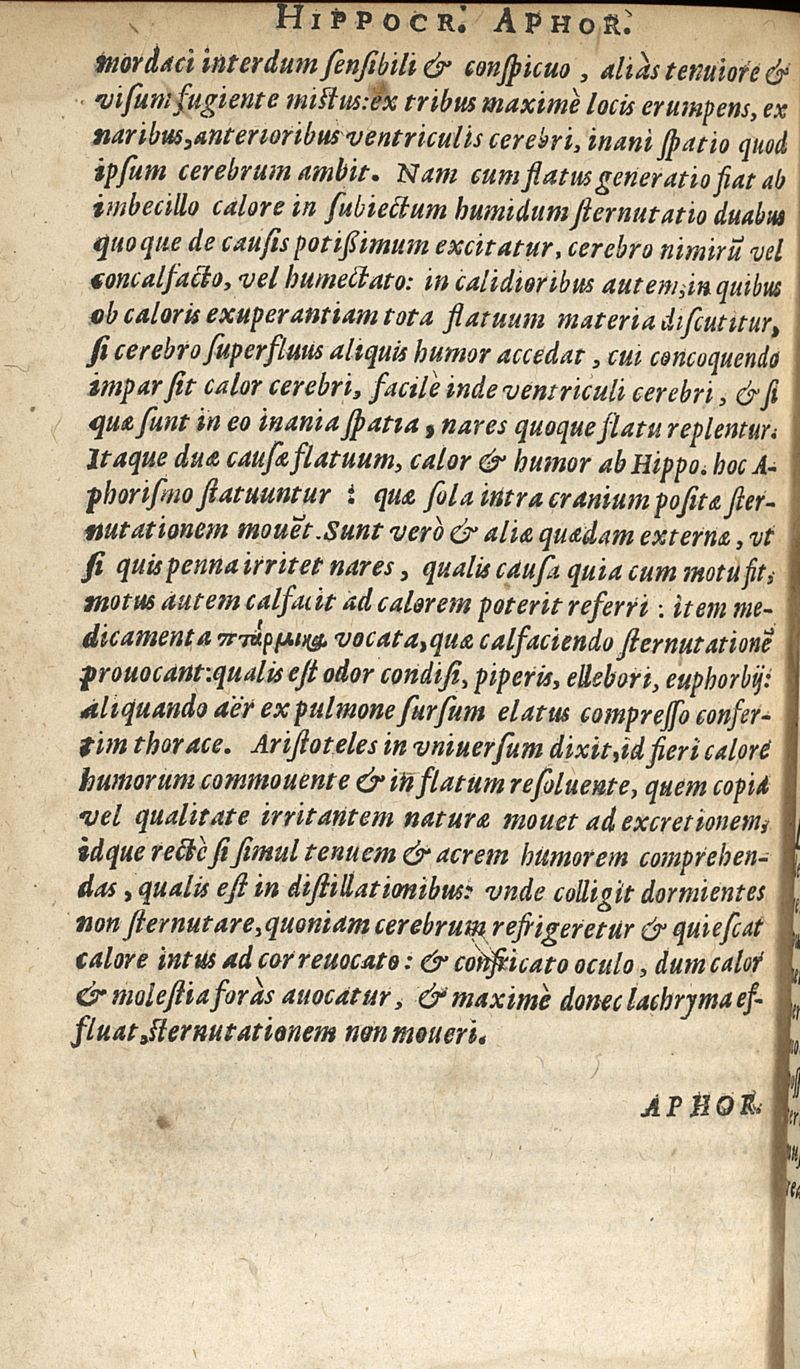 HIPPOCR. APHOR.
mordaci interdum ſenſibili & conſpicuo, aliàs tenuiore &
viſum fugiente mistus: ex tribus maximè locis erumpens, ex
naribus, anterioribus ventriculis cerebri, inani ſpatio quod
ipſum cerebrum ambit. Nam cum flatus generatio fiat ab
imbecillo calore in ſubiectum humidum ſternutatio duabus
quoque de cauſis potißimum excitatur, cerebro nimirũ vel
concalfacto, vel humectato: in calidioribus autem, in quibus
ob caloris exuperantiam tota flatuum materia diſcutitur,
ſi cerebro ſuperfluus aliquis humor accedat, cui concoquendo
impar ſit calor cerebri, facilè inde ventriculi cerebri, & ſi
quæ ſunt in eo inania ſpatia, nares quoque flatu replentur.
Itaque duæ cauſæ flatuum, calor & humor ab Hippo. hoc A-
phoriſmo ſtatuuntur : quæ ſola intra cranium poſitæ ſter-
nutationem mouẽt. Sunt verò & aliæ quædam externæ, vt
ſi quis penna irritet nares, qualis cauſa quia cum motu fit,
motus autem calfacit ad calorem poterit referri : item me-
dicamenta πτάρμικα vocata, quæ calfaciendo ſternutationẽ
prouocant: qualis eſt odor condiſi, piperis, ellebori, euphorbij:
aliquando aër ex pulmone ſurſum elatus compreſſo confer-
tim thorace. Ariſtoteles in vniuerſum dixit, id fieri calore
humorum commouente & in flatum reſoluente, quem copia
vel qualitate irritantem natura mouet ad excretionem,
idque rectè ſi ſimul tenuem & acrem humorem comprehen-
das, qualis eſt in diſtillationibus: vnde colligit dormientes
non ſternutare, quoniam cerebrum refrigeretur & quieſcat
calore intus ad cor reuocato: & confricato oculo, dum calor
& moleſtia foràs auocatur, & maximè donec lachryma ef-
fluat, ſternutationem non moueri.
APHOR.